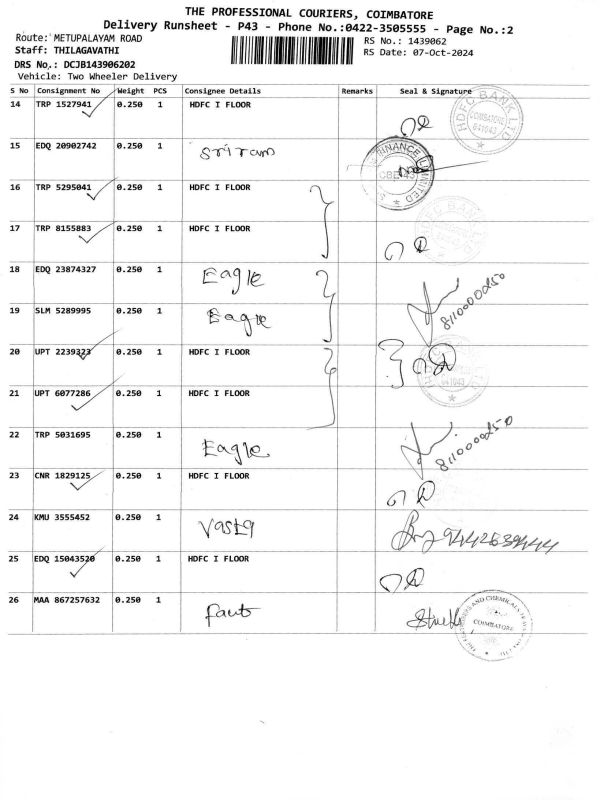 THE PROFESSIONAL COURIERS, COIMBATORE
Delivery Runsheet - P43 - Phone No.:0422-3505555 - Page No.:2
Route: METUPALAYAM ROAD
RS No.: 1439062
Staff: THILAGAVATHI
RS Date: 07-Oct-2024
DRS No,: DCJB143906202
Vehicle: Two Wheeler Delivery
S No Consignment No Weight PCS Consignee Details Remarks Seal & Signature
14 TRP 1527941 0.250 1 HDFC I FLOOR
HDFC BANK LTD COIMBATORE 641043
15 EDQ 20902742 0.250 1 Sriram
FINANCE LIMITED CBE-43
16 TRP 5295041 0.250 1 HDFC I FLOOR
17 TRP 8155883 0.250 1 HDFC I FLOOR
18 EDQ 23874327 0.250 1 Eagle
8110000250
19 SLM 5289995 0.250 1 Eagle
20 UPT 2239323 0.250 1 HDFC I FLOOR
641043
21 UPT 6077286 0.250 1 HDFC I FLOOR
22 TRP 5031695 0.250 1 Eagle
8110000250
23 CNR 1829125 0.250 1 HDFC I FLOOR
24 KMU 3555452 0.250 1 Vasta
25 EDQ 15043520 0.250 1 HDFC I FLOOR
26 MAA 867257632 0.250 1
COIMBATORE